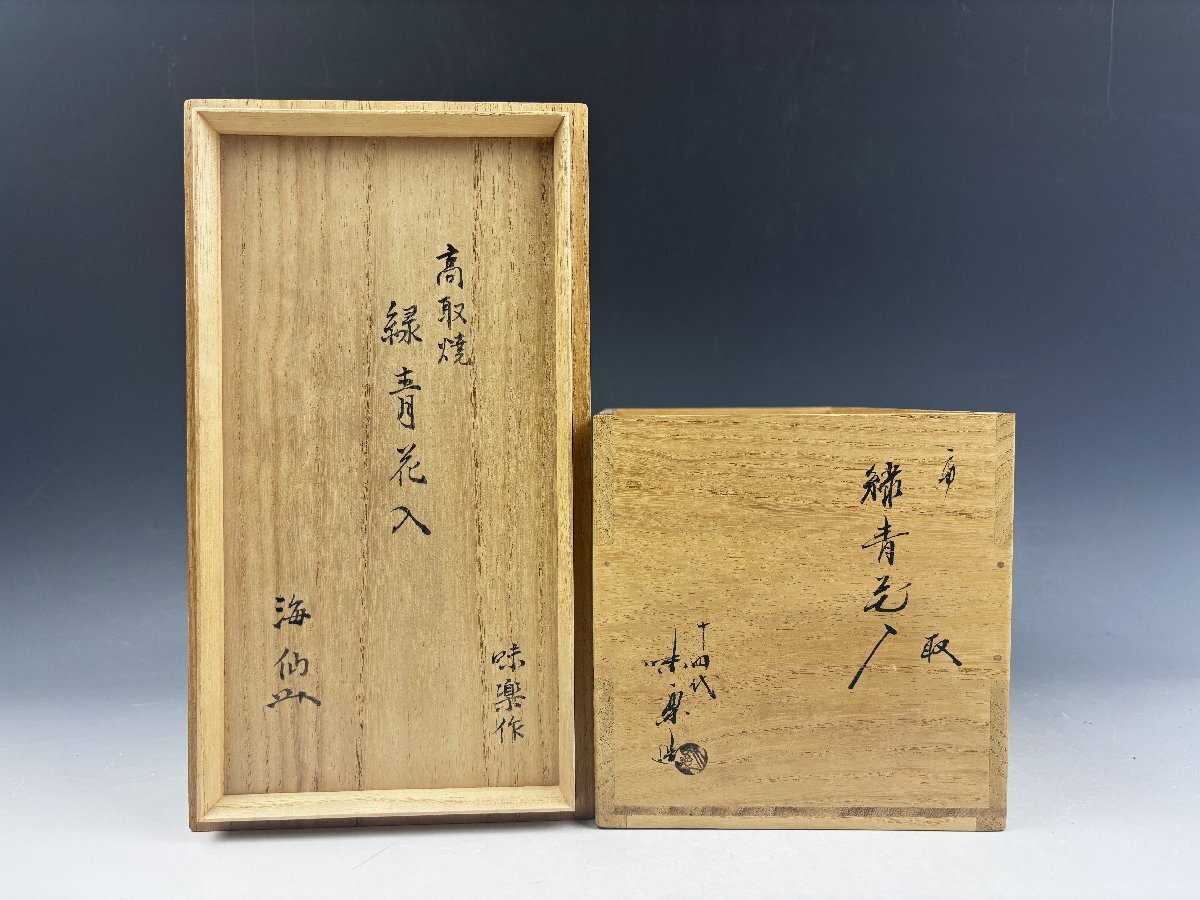 高取焼
緑青花入
味楽作
海仙
高取
緑青花入
十四代
味楽造